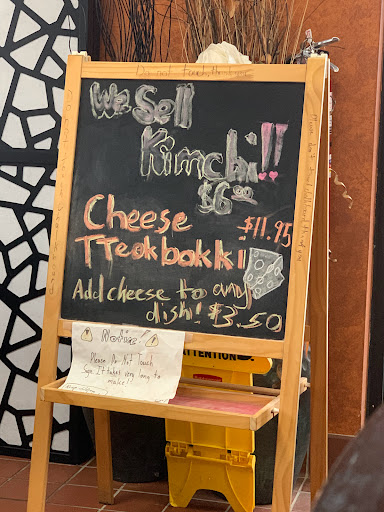 We Sell
Kimchi!!
$6.00
Cheese $11.95
TTeokbokki
Add cheese to any
dish! $3.50
Notice!
Please Do Not Touch
Sign. It takes very long to
make!!
ATTENTION